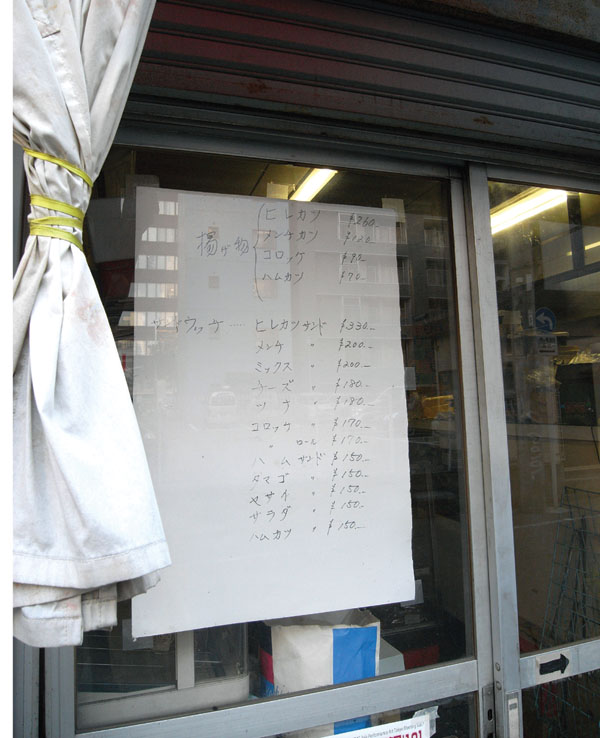 揚ゲ物
ヒレカツ ¥260
メンチカツ ¥120
コロッケ ¥80-
ハムカツ ¥70-
ヒレカツサンド ¥330-
メンチ 〃 ¥200-
ミックス 〃 ¥200-
チーズ 〃 ¥180-
ツナ 〃 ¥180-
コロッケ 〃 ¥170-
〃 ロール ¥170-
ハムサンド ¥150-
タマゴ 〃 ¥150-
ヤサイ 〃 ¥150-
サラダ 〃 ¥150-
ハムカツ 〃 ¥150-